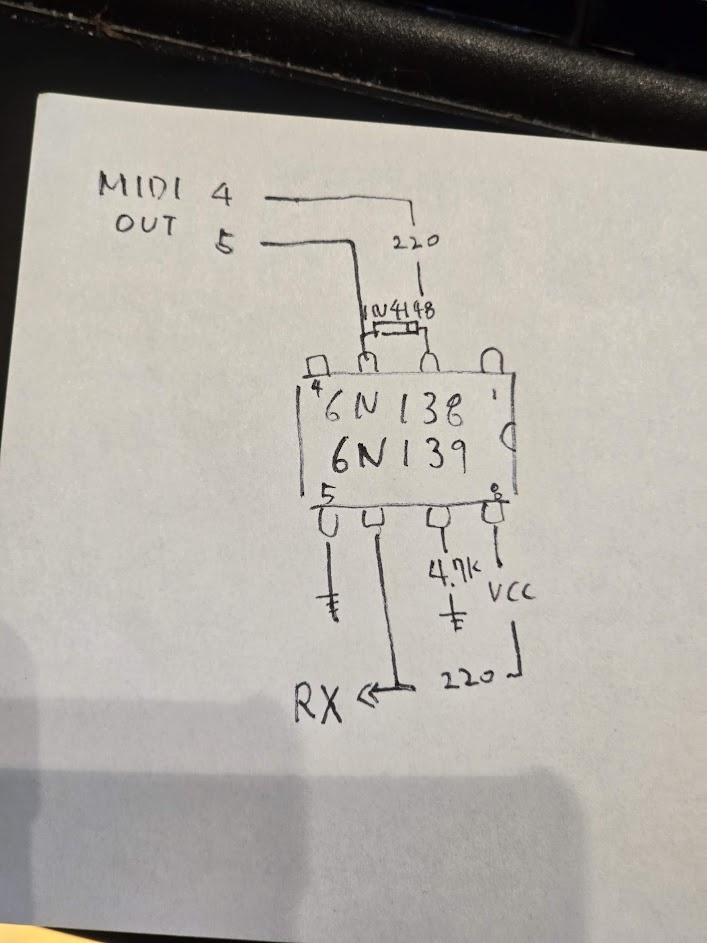 MIDI 4
OUT 5
220
1N4148
4 1
6N138
6N139
5 8
4.7K
VCC
220
RX